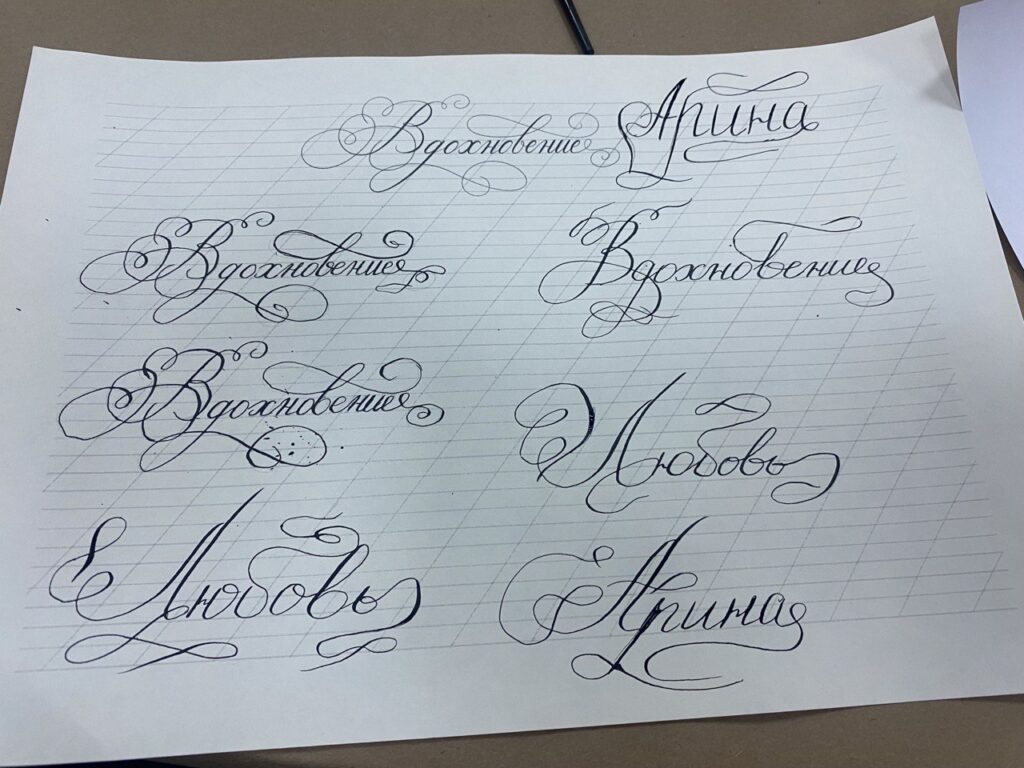 Вдохновение Арина
Вдохновение Вдохновение
Вдохновение Любовь
Любовь Арина